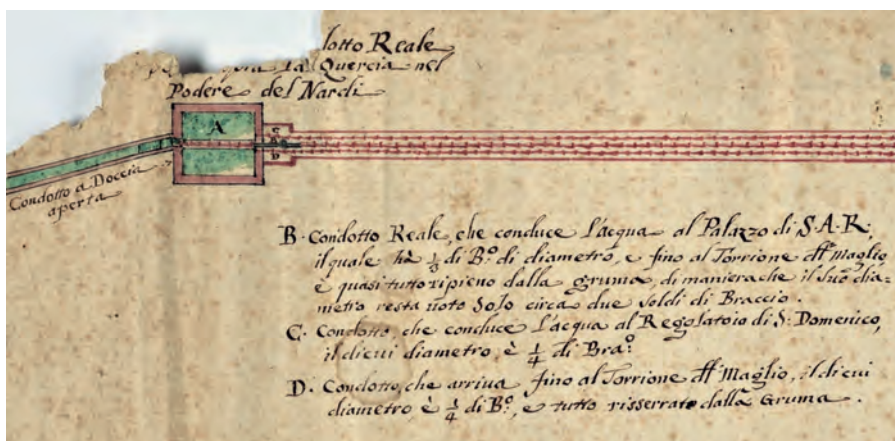 lotto Reale
la Quercia nel
Podere del Nardi
A
C
D
Condotto a Doccia
aperta
B. Condotto Reale, che conduce l'acqua al Palazzo di S.A.R.
il quale hà 1/3 di B.º di diametro, e fino al Torrione dll Maglio
è quasi tutto ripieno dalla gruma, di maniera che il suo dia-
metro resta uoto solo circa due soldi di Braccio.
C. Condotto, che conduce l'acqua al Regolatoio di S: Domenico,
il di cui diametro, è 1/4 di Bra.º
D. Condotto, che arriva fino al Torrione dll Maglio, il di cui
diametro, è 1/4 di B.º, e tutto risserrato dalla Gruma.